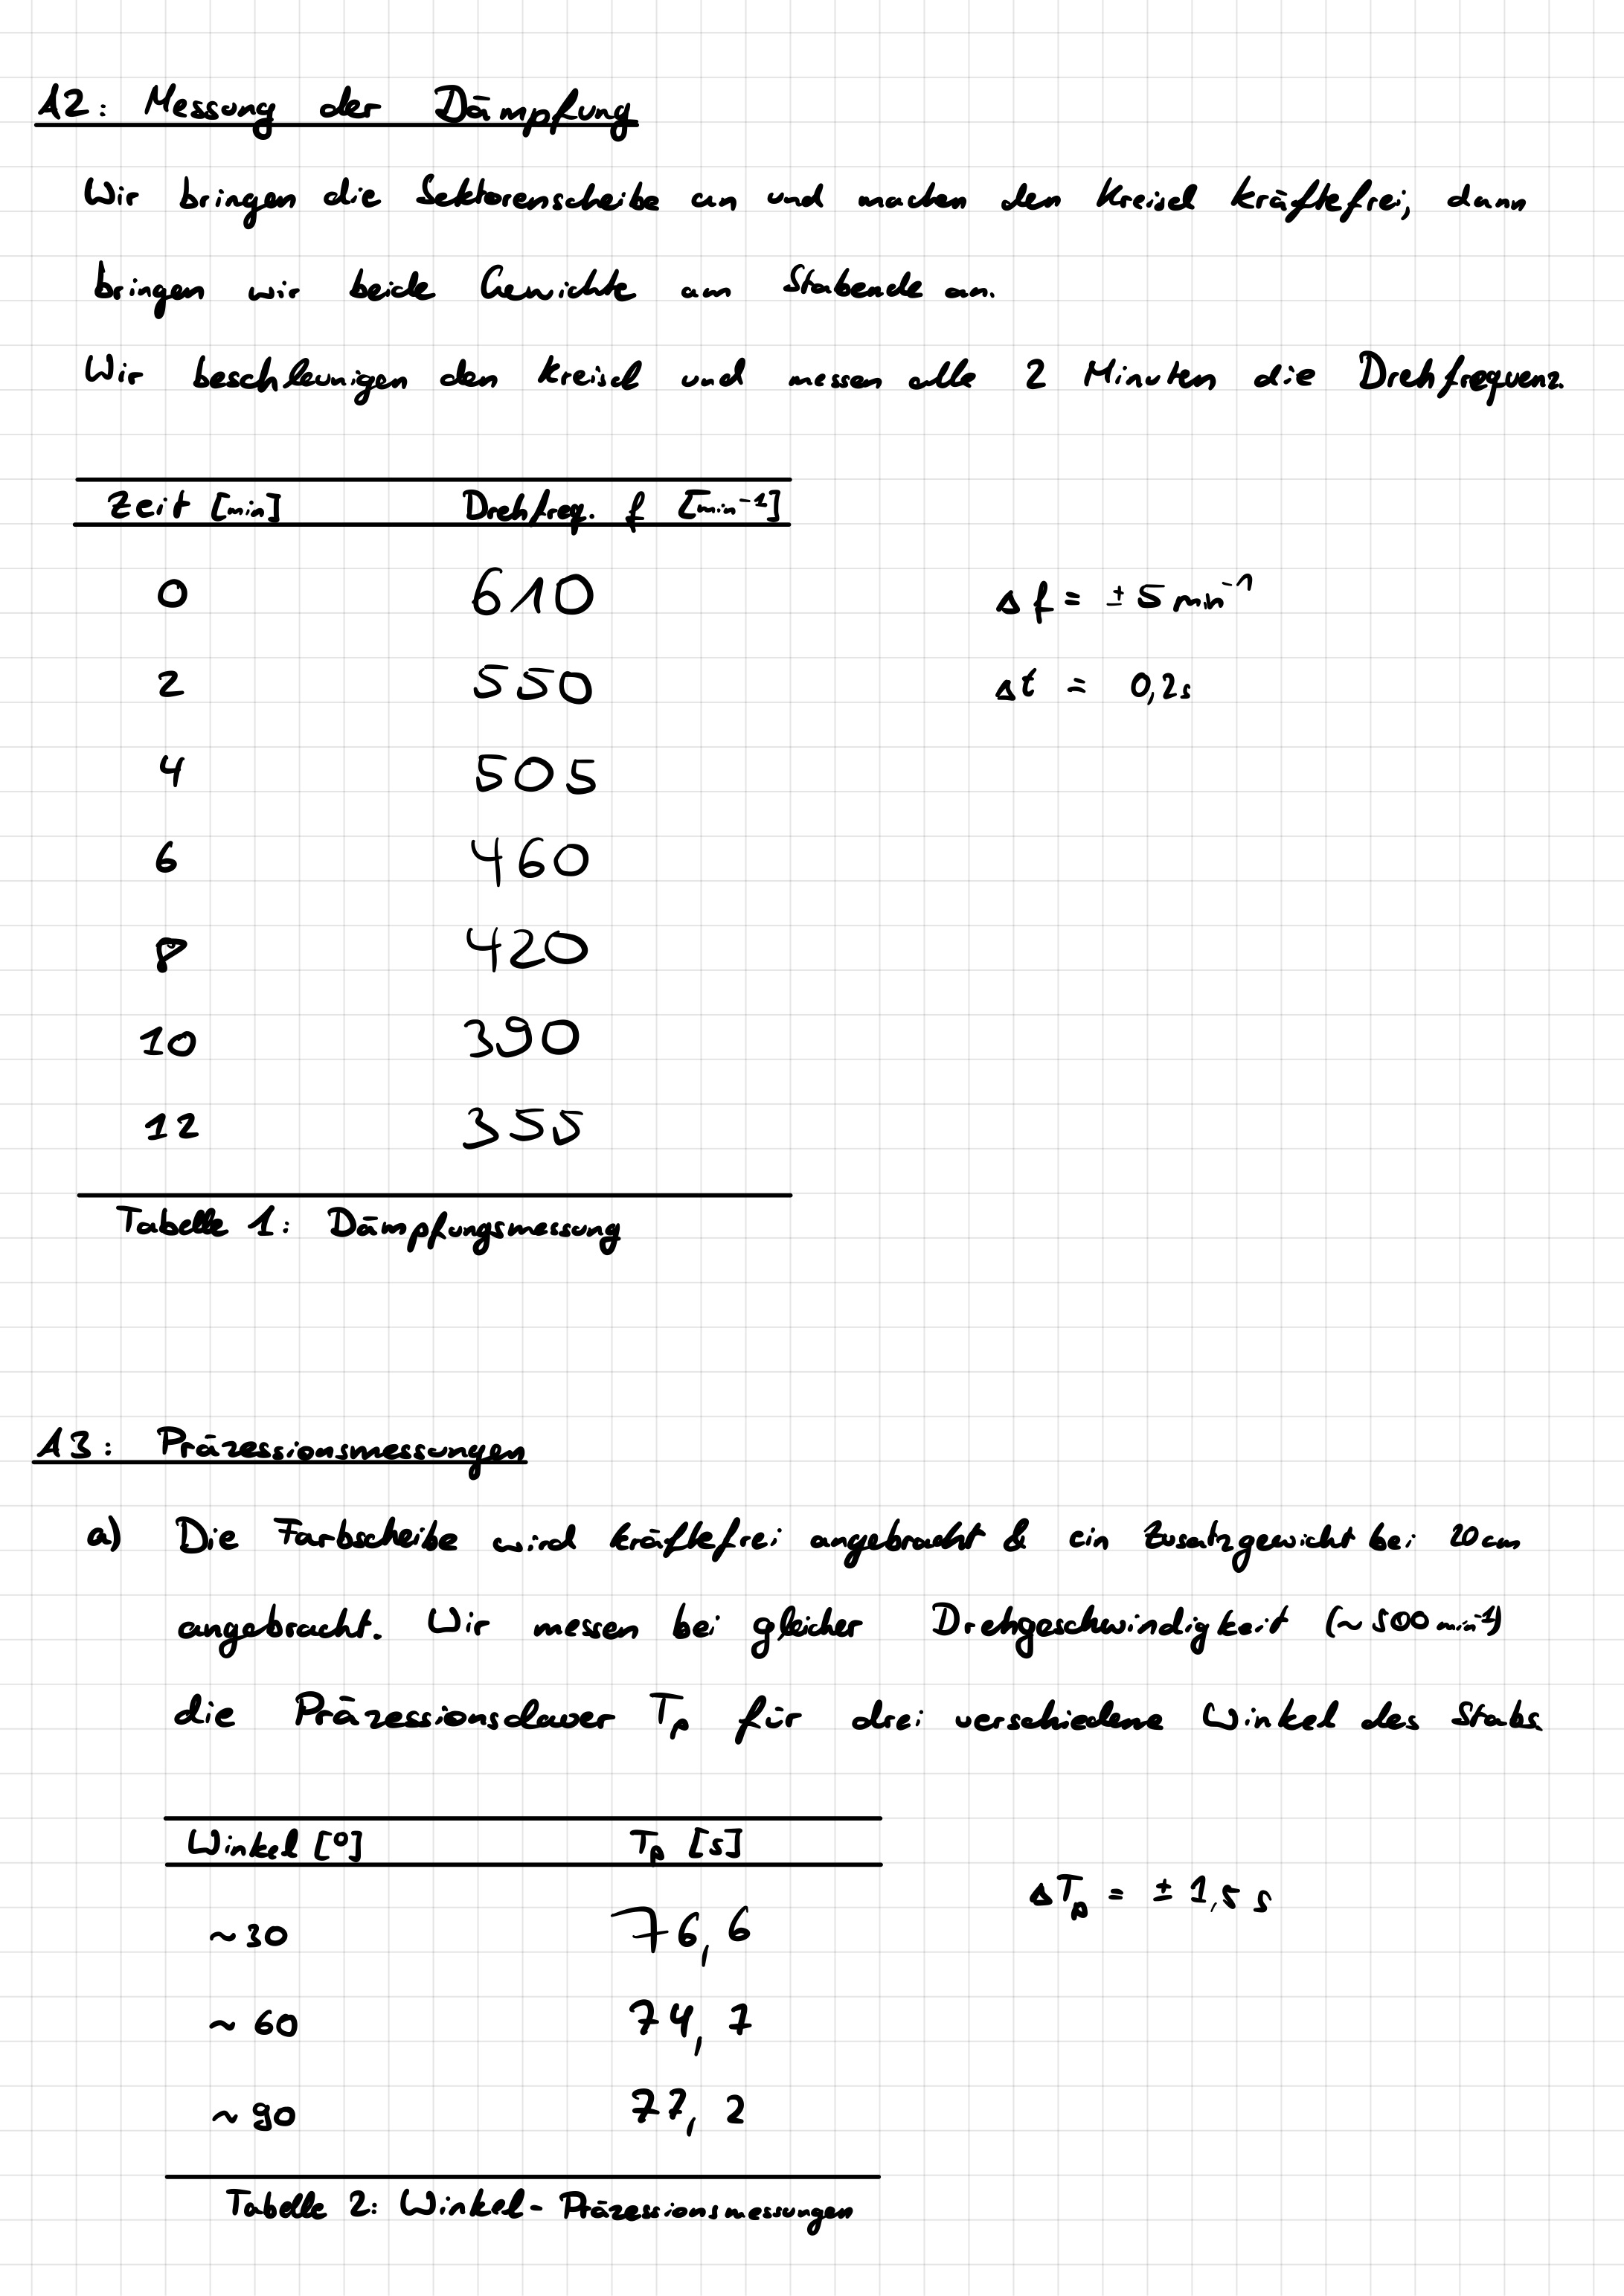 A2: Messung der Dämpfung
Wir bringen die Sektorenscheibe an und machen den Kreisel kräftefrei, dann
bringen wir beide Gewichte am Stabende an.
Wir beschleunigen den Kreisel und messen alle 2 Minuten die Drehfrequenz.
Zeit [min] Drehfreq. f [min⁻¹]
0 610 Δf = ± 5 min⁻¹
2 550 Δt = 0,2s
4 505
6 460
8 420
10 390
12 355
Tabelle 1: Dämpfungsmessung
A3: Präzessionsmessungen
a) Die Farbscheibe wird kräftefrei angebracht & ein Zusatzgewicht bei 20cm
angebracht. Wir messen bei gleicher Drehgeschwindigkeit (~500 min⁻¹)
die Präzessionsdauer Tₚ für drei verschiedene Winkel des Stabs.
Winkel [°] Tₚ [s]
ΔTₚ = ± 1,5 s
~30 76,6
~ 60 74,7
~ 90 77,2
Tabelle 2: Winkel-Präzessionsmessungen